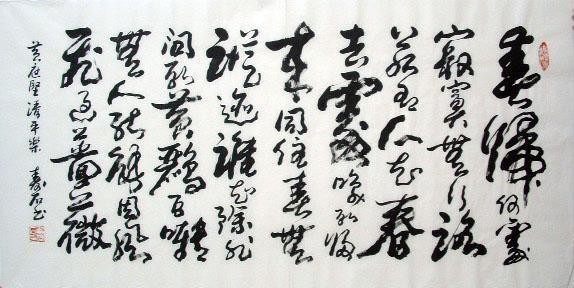 春歸何處
寂寞無行路
若有人知春
去處喚取歸
來同住春無
蹤迹誰知除非
問取黃鸝百囀
無人能解因風
飛過薔薇
黃庭堅清平樂 壽石書